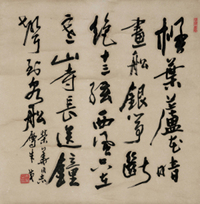 楓葉蘆花暗
畫船銀箏斷
絕十三弦西風只在
寒山寺長送鐘
聲到客船